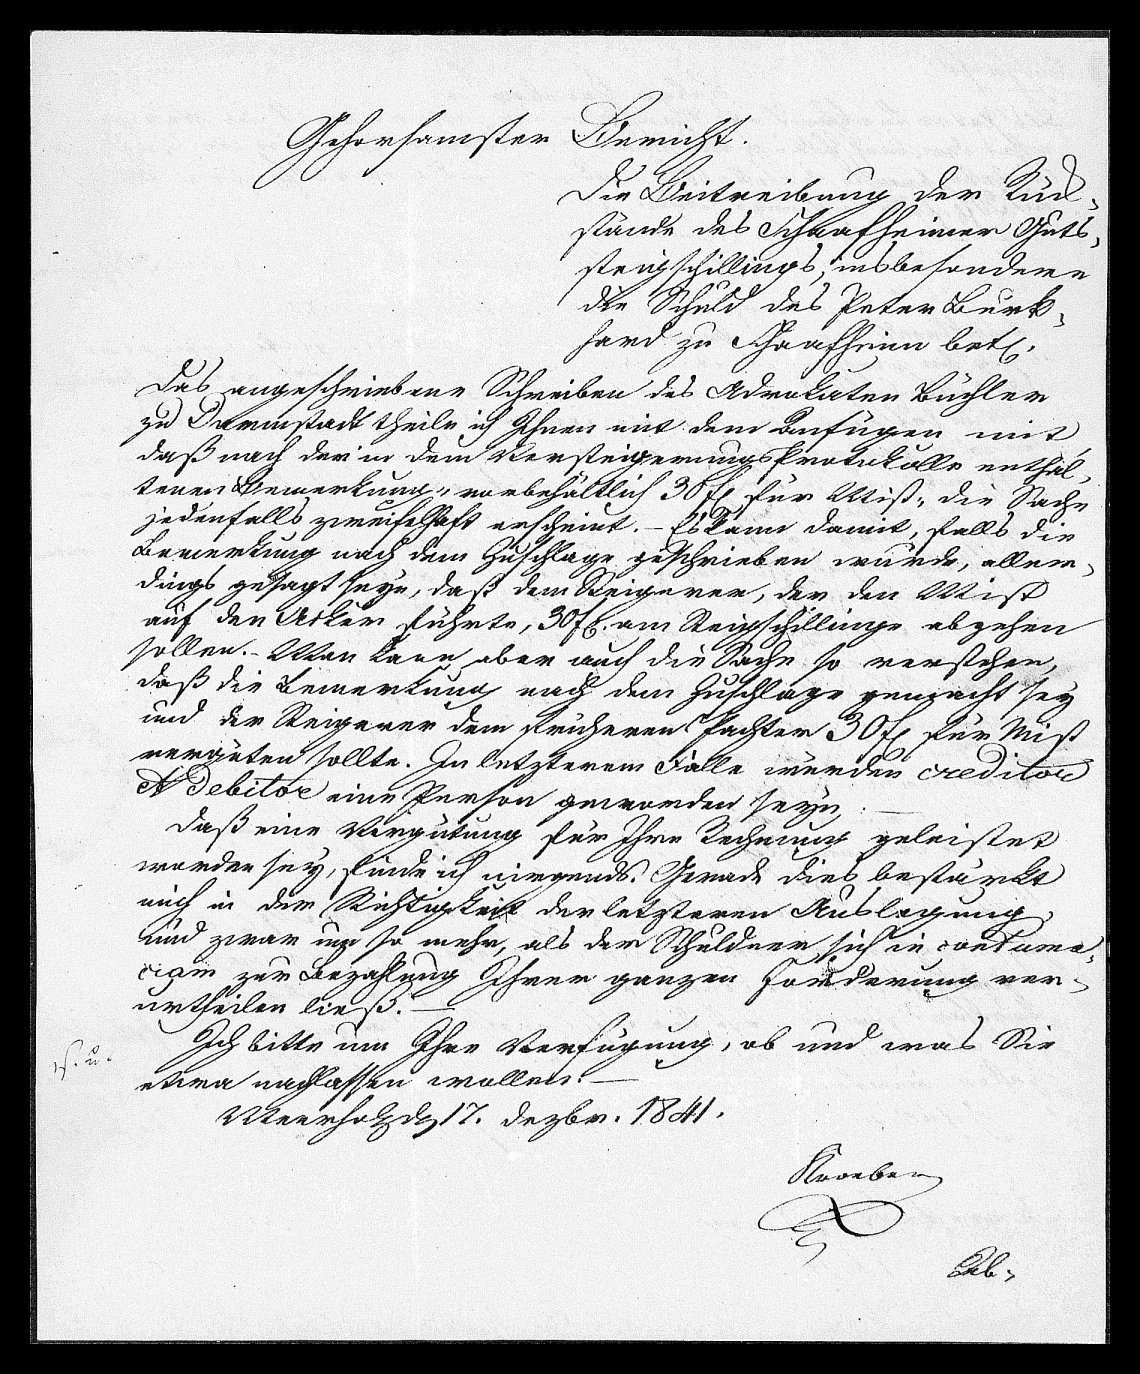 Gehorsamster Bericht.
Die Beitreibung der Rück-
stände des Schaafheimer Guts-
steigschillings, insbesondere
die Schuld des Peter Burk-
hard zu Schaafheim betr.
Das angeschriebene Schreiben des Advokaten Büchler
zu Darmstadt theile ich Ihnen mit dem Anfügen mit
daß nach der in dem Versteigerungsprotokolle enthal-
tenen Bemerkung „vorbehältlich 30 f für Mist„ die Sache
jedenfalls zweifelhaft erscheint. – Es kann damit, falls die
Bemerkung nach dem Zuschlage geschrieben wurde, aller-
dings gesagt seyn, daß dem Steigerer, der den Mist
auf den Acker führte, 30 f. am Steigschillinge abgehen
sollen. – Man kann aber auch die Sache so verstehen,
daß die Bemerkung nach dem Zuschlage gemacht sey
und der Steigerer dem früheren Pachter 30 f für Mist
vergüten sollte. In letzterem Falle würden creditor
& debitor eine Person geworden seyn.
Daß eine Vergütung für Ihre Rechnung geleistet
worden sey, finde ich nirgends. Gerade dies bestärkt
mich in der Richtigkeit der letzteren Auslegung,
und zwar um so mehr, als der Schuldner sich in contuma-
ciam zur Bezahlung Ihrer ganzen Forderung ver-
urtheilen ließ. –
Ich bitte um Ihre Verfügung, ob und was Sie
etwa nachlassen wollen. –
s. u.
Meerholz d 17. Dezbr. 1841.
Kroeber